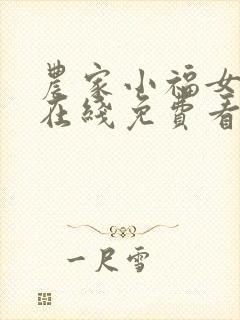 農家小福女
在綫免費看
一尺雪